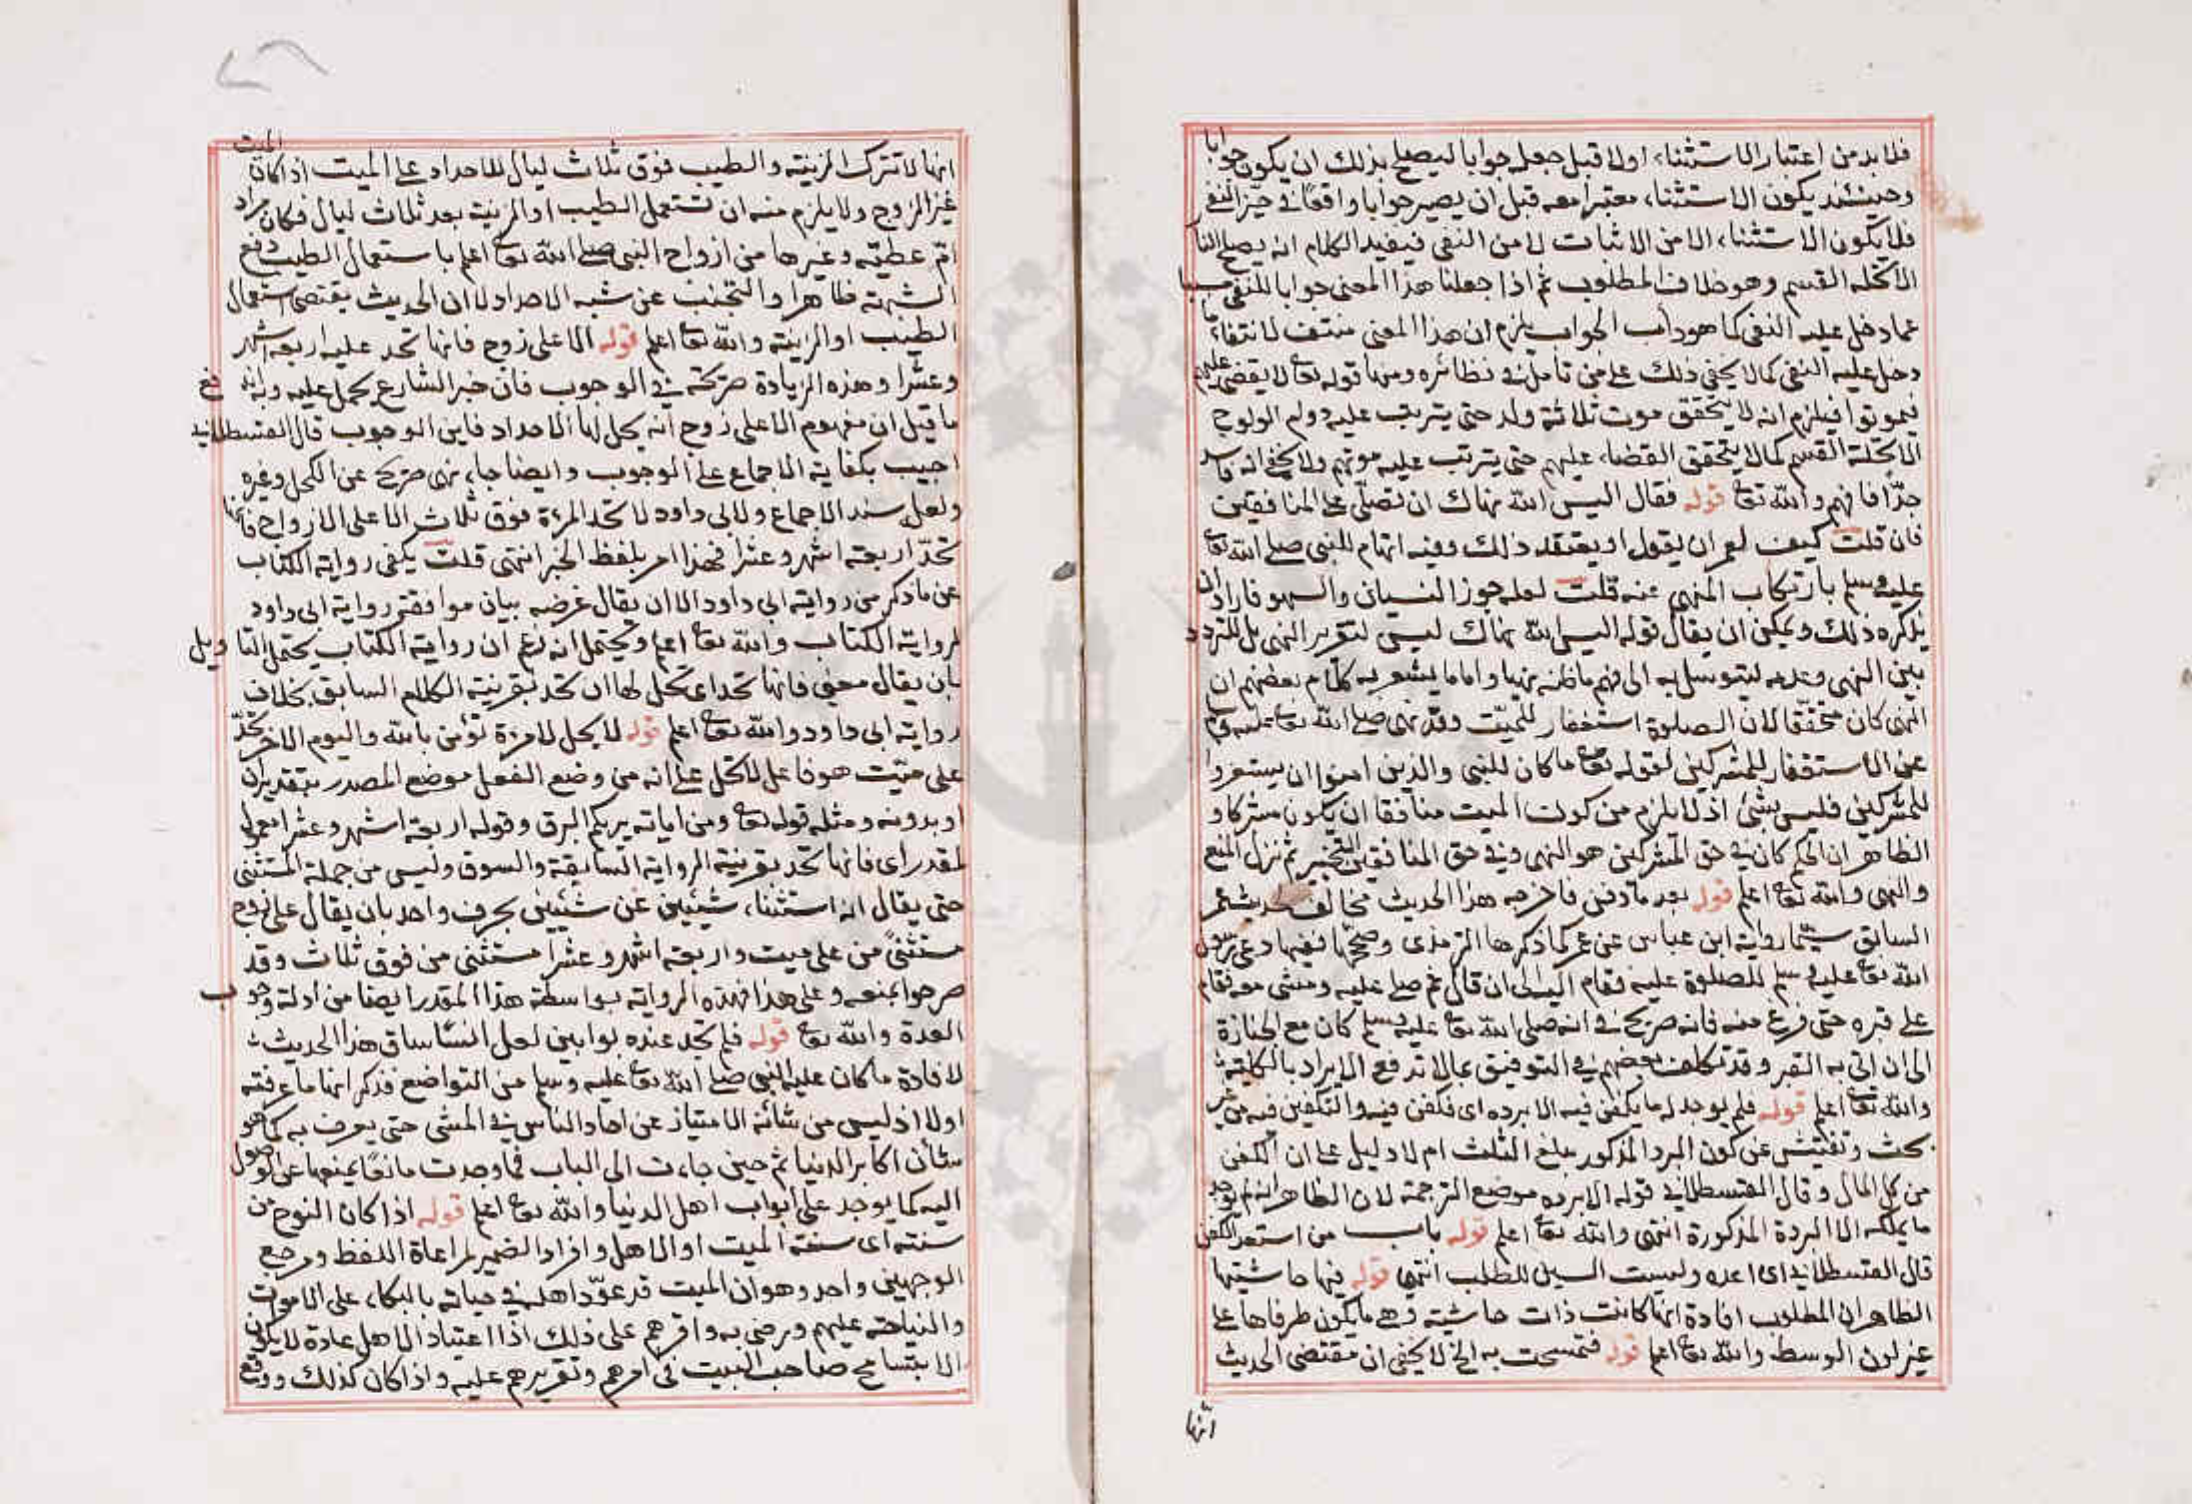 فلا بد من اعتبار الاستثناء اولا قبل جعله جوابا ليصلح بذلك ان يكون جوابا
وحينئذ يكون الاستثناء معتبرا معه قبل ان يصير جوابا واقعا في حيز النفي
فلا يكون الاستثناء الا من الاثبات لا من النفي فيفيد الكلام انه يصلح النار
الا تحلة القسم وهو خلاف المطلوب ثم اذا جعلنا هذا المعنى جوابا للنفي مسببا
عما دخل عليه النفي كما هو دأب الجواب يلزم ان هذا المعنى منتف لانتفاء ما
دخل عليه النفي كما لا يخفى ذلك على من تامل في نظائره ومنها قوله تعا لا يقضى عليهم
فيموتوا فيلزم انه لا يتحقق موت ثلاثة ولد حتى يترتب عليه دوام الولوج
الا تحلة القسم كما لا يتحقق القضاء عليهم حتى يترتب عليه موتهم ولا يخفى انه فاسد
جدّا فافهم والله تعا قوله فقال اليس الله نهاك ان تصلّى على المنافقين
فان قلت كيف لعمر ان يقول او يعتقد ذلك وفيه اتهام للنبي صلى الله تعا
عليه وسلم بارتكاب المنهي عنه قلت لعله جوز النسيان والسهو فاراد ان
يذكره ذلك ويمكن ان يقال قوله اليس الله نهاك ليس لتقرير النهي بل للتردد
بين النهي وعدمه ليتوسل به الى فهم ما ظنه نهيا واما ما يشعر به كلام بعضهم ان
النهي كان متحقّقا لان الصلوة استغفار للميّت وقد نهى صلى الله تعا عليه وسلم
عن الاستغفار للمشركين لقوله تعا ما كان للنبي والذين امنوا ان يستغفروا
للمشركين فليس بشئ اذ لا يلزم من كون الميت منافقا ان يكون مشركا و
الظاهر ان الحكم كان في حق المشركين هو النهي وفي حق المنافقين التخيير ثم نزل المنع
والنهي والله تعا اعلم قوله بعد ما دفن فاخرجه هذا الحديث مخالف لحديث عمر
السابق سيّما رواية ابن عباس عن عمر كما ذكرها الترمذي وصححّها ففيها دعي رسول
الله تعا عليه وسلم للصلوة عليه فقام اليه الى ان قال ثم صلى عليه ومشى معه فقام
على قبره حتى فرغ منه فانه صريح في انه صلى الله تعا عليه وسلم كان مع الجنازة
الى ان اتى به القبر وقد تكلف بعضهم في التوفيق بما لا تدفع الايراد بالكلية
والله تعا اعلم قوله فلم يوجد له ما يكفن فيه الا برده اي فكفن فيه والتكفين فيه من غير
بحث وتفتيش عن كون البرد المذكور مبلغ الثلث ام لا دليل على ان الكفن
من كل المال وقال القسطلاني قوله الا برده موضع الترجمة لان الظاهر انه لم يوجد
ما يملكه الا البردة المذكورة انتهى والله تعا اعلم قوله باب من استعد الكفن
قال القسطلاني اى اعده وليست السين للطلب انتهى قوله فيها حاشيتها
الظاهر ان المطلوب افادة انها كانت ذات حاشية وهي ما يكون طرفاها على
غير لون الوسط والله تعا اعلم قوله فتمسحت به الخ لا يخفى ان مقتضى الحديث
انها
انها لا تترك الزينة والطيب فوق ثلاث ليال للاحداد على الميت اذا كان الميت
غير الزوج ولا يلزم منه ان تستعمل الطيب او الزينة بعد ثلاث ليال فكان مراد
امّ عطيّة وغيرها من ازواج النبي صلى الله تعا اعلم باستعمال الطيب دفع
الشبهة ظاهرا والتجنب عن شبه الاحداد لا ان الحديث يقتضى استعمال
الطيب او الزينة والله تعا اعلم قوله الا على زوج فانها تحد عليه اربعة اشهر
وعشرا وهذه الزيادة صريحة في الوجوب فان خبر الشارع يحمل عليه وبه اندفع
ما قيل ان مفهوم الا على زوج انه يحل لها الاحداد فاين الوجوب قال القسطلاني
اجيب بكفاية الاجماع على الوجوب وايضا جاء نهى صريح عن الكحل وغيره
ولعل سند الاجماع ولابي داود لا تحد المرءة فوق ثلاث الا على الازواج فانها
تحدّ اربعة اشهر وعشرا فهذا امر بلفظ الخبر انتهى قلت يكفى رواية الكتاب
عن ما ذكر من رواية ابي داود الا ان يقال غرضه بيان موافقة رواية ابي داود
لرواية الكتاب والله تعا اعلم ويحتمل انه زعم ان رواية الكتاب يحتمل التاويل
بان يقال معنى فانها تحد اى تحل لها ان تحد بقرينة الكلام السابق بخلاف
رواية ابي داود والله تعا اعلم قوله لا يحل لامرءة تؤمن بالله واليوم الاخر تحدّ
على ميّت هو فاعل لا تحل على انه من وضع الفعل موضع المصدر بتقدير ان
او بدونه ومثله قوله تعا ومن اياته يريكم البرق وقوله اربعة اشهر وعشرا معمول
لمقدر اى فانها تحد بقرينة الرواية السابقة والسوق وليس من جملة المستثنى
حتى يقال انه استثناء شيئين عن شيئين بحرف واحد بان يقال على زوج
مستثنىً من على ميت واربعة اشهر وعشرا مستثنى من فوق ثلاث وقد
صرحوا بمنعه وعلى هذا فهذه الرواية بواسطة هذا المقدر ايضا من ادلة وجوب
العدة والله تعا قوله فلم تجد عنده بوابين لعل انسا ساق هذا الحديث
لافادة ما كان عليه النبي صلى الله تعا عليه وسلم من التواضع فذكر انها ما عرفته
اولا اذ ليس من شانه الامتياز عن احاد الناس في المشى حتى يعرف به كما هو
شأن اكابر الدنيا ثم حين جاءت الى الباب فما وجدت مانعًا يمنعها عن الوصول
اليه كما يوجد على ابواب اهل الدنيا والله تعا اعلم قوله اذا كان النوح من
سنته اى سنة الميت او الاهل وافراد الضمير لمراعاة اللفظ ومرجع
الوجهين واحد وهو ان الميت قد عوّد اهله في حياته بالبكاء على الاموات
والنياحة عليهم ورضى به واقرهم على ذلك اذ اعتياد الاهل عادة لا يكون
الا بتسامح صاحب البيت في امرهم وتقريرهم عليه واذا كان كذلك ووقع